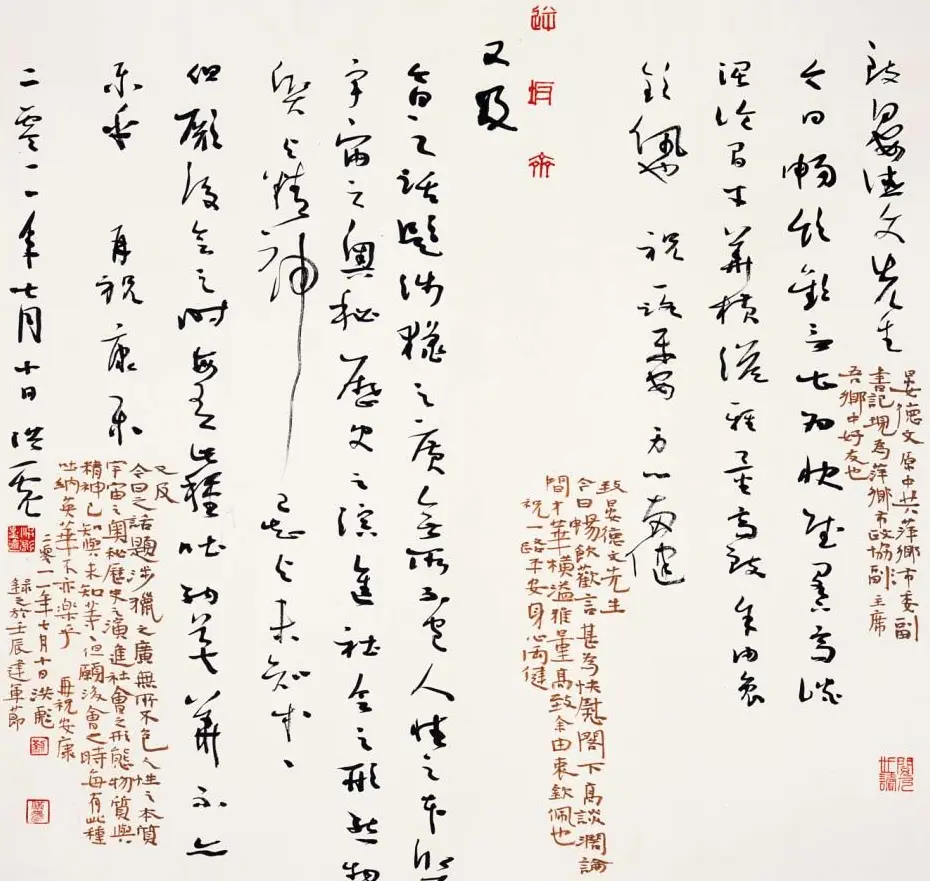 致晏德文先生
晏德文原中共萍鄉市委副
書記現為萍鄉市政協副主席
吾鄉中好友也
今日暢飲歡言甚为快慰閣下高談
濶論间才華横溢雅量高致余由衷
钦佩也 祝一路平安 身心两健
致晏德文先生
今日暢飲歡言甚為快慰閣下高談濶論
間才華橫溢雅量高致余由衷欽佩也
祝一路平安身心両健
又及
今日之話題涉猎之廣無所不包人性之本質
宇宙之奥秘歷史之演進社会之形態物
質与精神 已知与未知等、
但願後会之时每有此種吐納英華不亦
乐乎 再祝康乐
二零一一年七月十日 洪彪
又及
今日之話題涉獵之廣無所不包人性之本質
宇宙之奧秘歷史之演進社會之形態物質與
精神已知與未知等、但願後會之時每有此種
吐納英華不亦樂乎 再祝安康
二零一一年七月十日洪彪
録之於壬辰建軍節